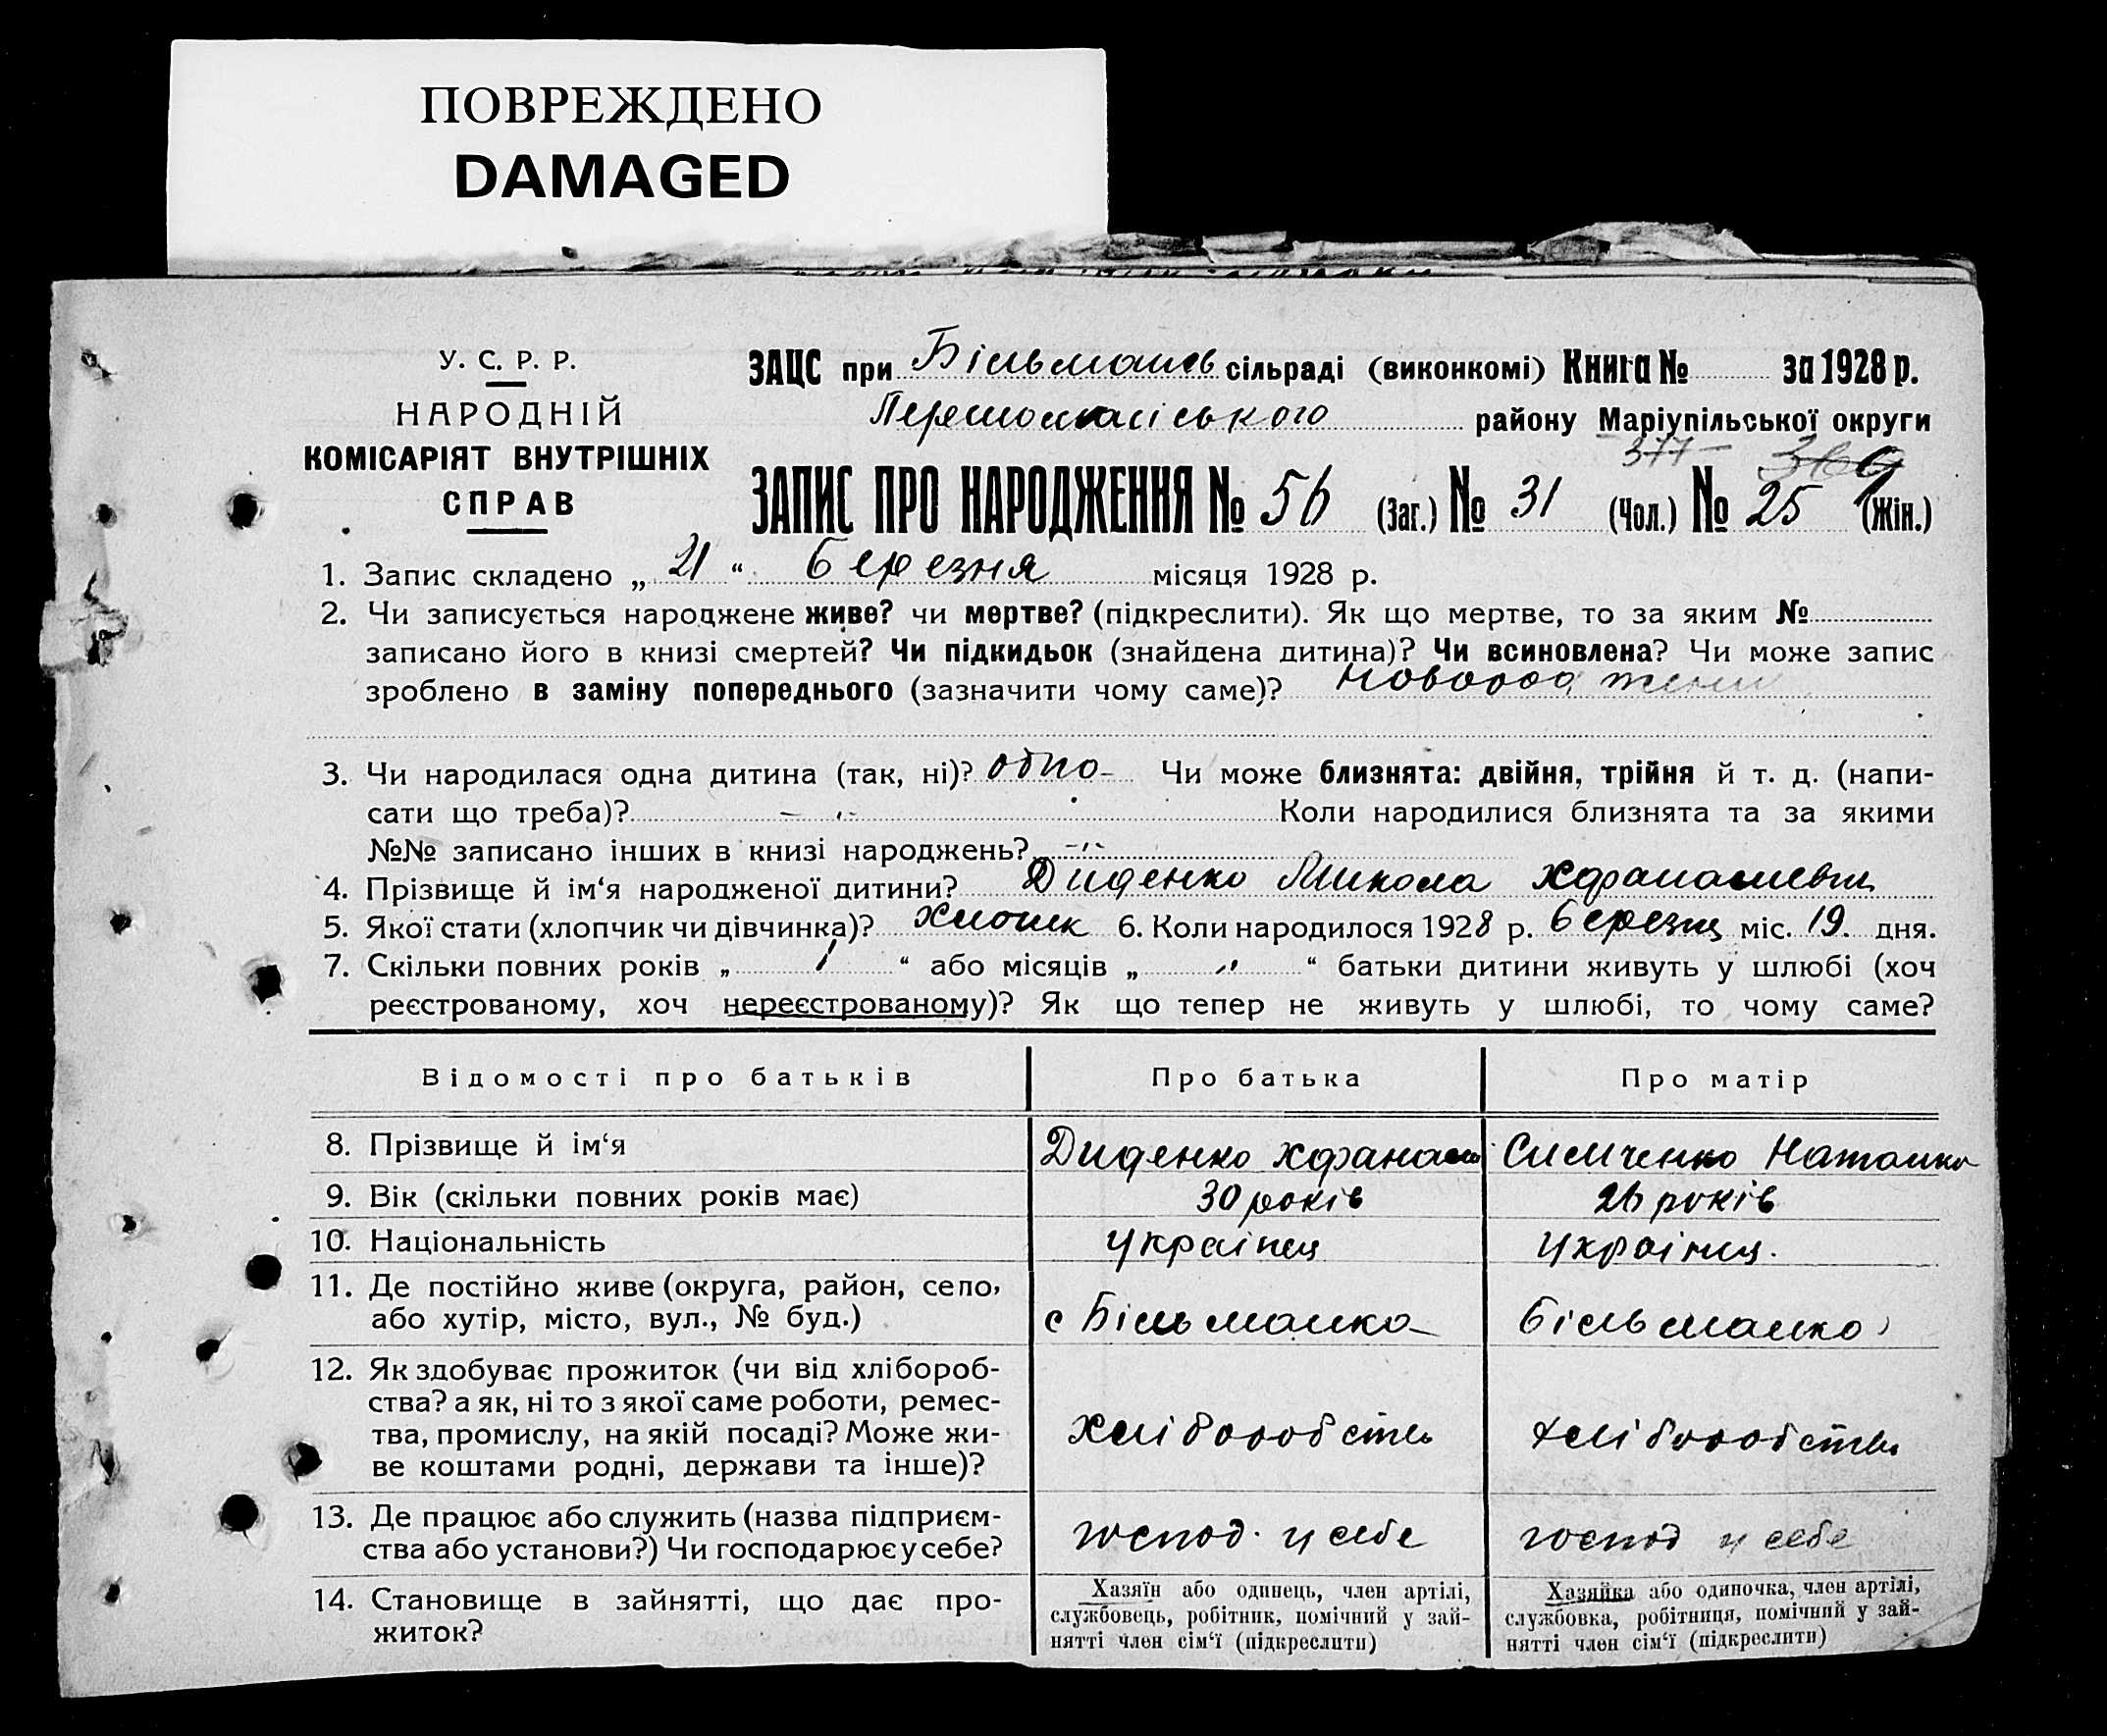 ПОВРЕЖДЕНО
DAMAGED
У. С. Р. Р.
НАРОДНІЙ
КОМІСАРІЯТ ВНУТРІШНІХ
СПРАВ
ЗАЦС при Більмансь сільраді (виконкомі) Книга № за 1928 р.
району Маріупільської округи
377
ЗАПИС ПРО НАРОДЖЕННЯ № 56 (Заг.) № 31 (Чол.) № 25 (Жін.)
1. Запис складено „ 21 “ березня місяця 1928 р.
2. Чи записується народжене живе? чи мертве? (підкреслити). Як що мертве, то за яким №
записано його в книзі смертей? Чи підкидьок (знайдена дитина)? Чи всиновлена? Чи може запис
зроблено в заміну попереднього (зазначити чому саме)?
3. Чи народилася одна дитина (так, ні)? одно Чи може близнята: двійня, трійня й т. д. (напи-
сати що треба)? Коли народилися близнята та за якими
№№ записано інших в книзі народжень?
4. Прізвище й ім‘я народженої дитини? Диденко Микола
5. Якої стати (хлопчик чи дівчинка)? 6. Коли народилося 1928 р. березня міс. 19. дня.
7. Скільки повних років „ 1 “ або місяців „ “ батьки дитини живуть у шлюбі (хоч
реєстрованому, хоч нереєстрованому)? Як що тепер не живуть у шлюбі, то чому саме?
Відомості про батьків Про батька Про матір
8. Прізвище й ім‘я Диденко Хфанас Симченко Наталка
9. Вік (скільки повних років має) 30 років 26 років
10. Національність українец українец.
11. Де постійно живе (округа, район, село,
або хутір, місто, вул., № буд.) с Більманка Більманка
12. Як здобуває прожиток (чи від хлібороб-
ства? а як, ні то з якої саме роботи, ремес-
тва, промислу, на якій посаді? Може жи- хліборобство хліборобство
ве коштами родні, держави та інше)?
13. Де працює або служить (назва підприєм-
ства або установи?) Чи господарює у себе? господ. у себе господ у себе
14. Становище в зайнятті, що дає про-
житок?
Хазяїн або одинець, член артілі,
службовець, робітник, помічний у зай-
нятті член сім‘ї (підкреслити)
Хазяйка або одиночка, член артілі,
службовка, робітниця, помічний у зай-
нятті член сім‘ї (підкреслити)